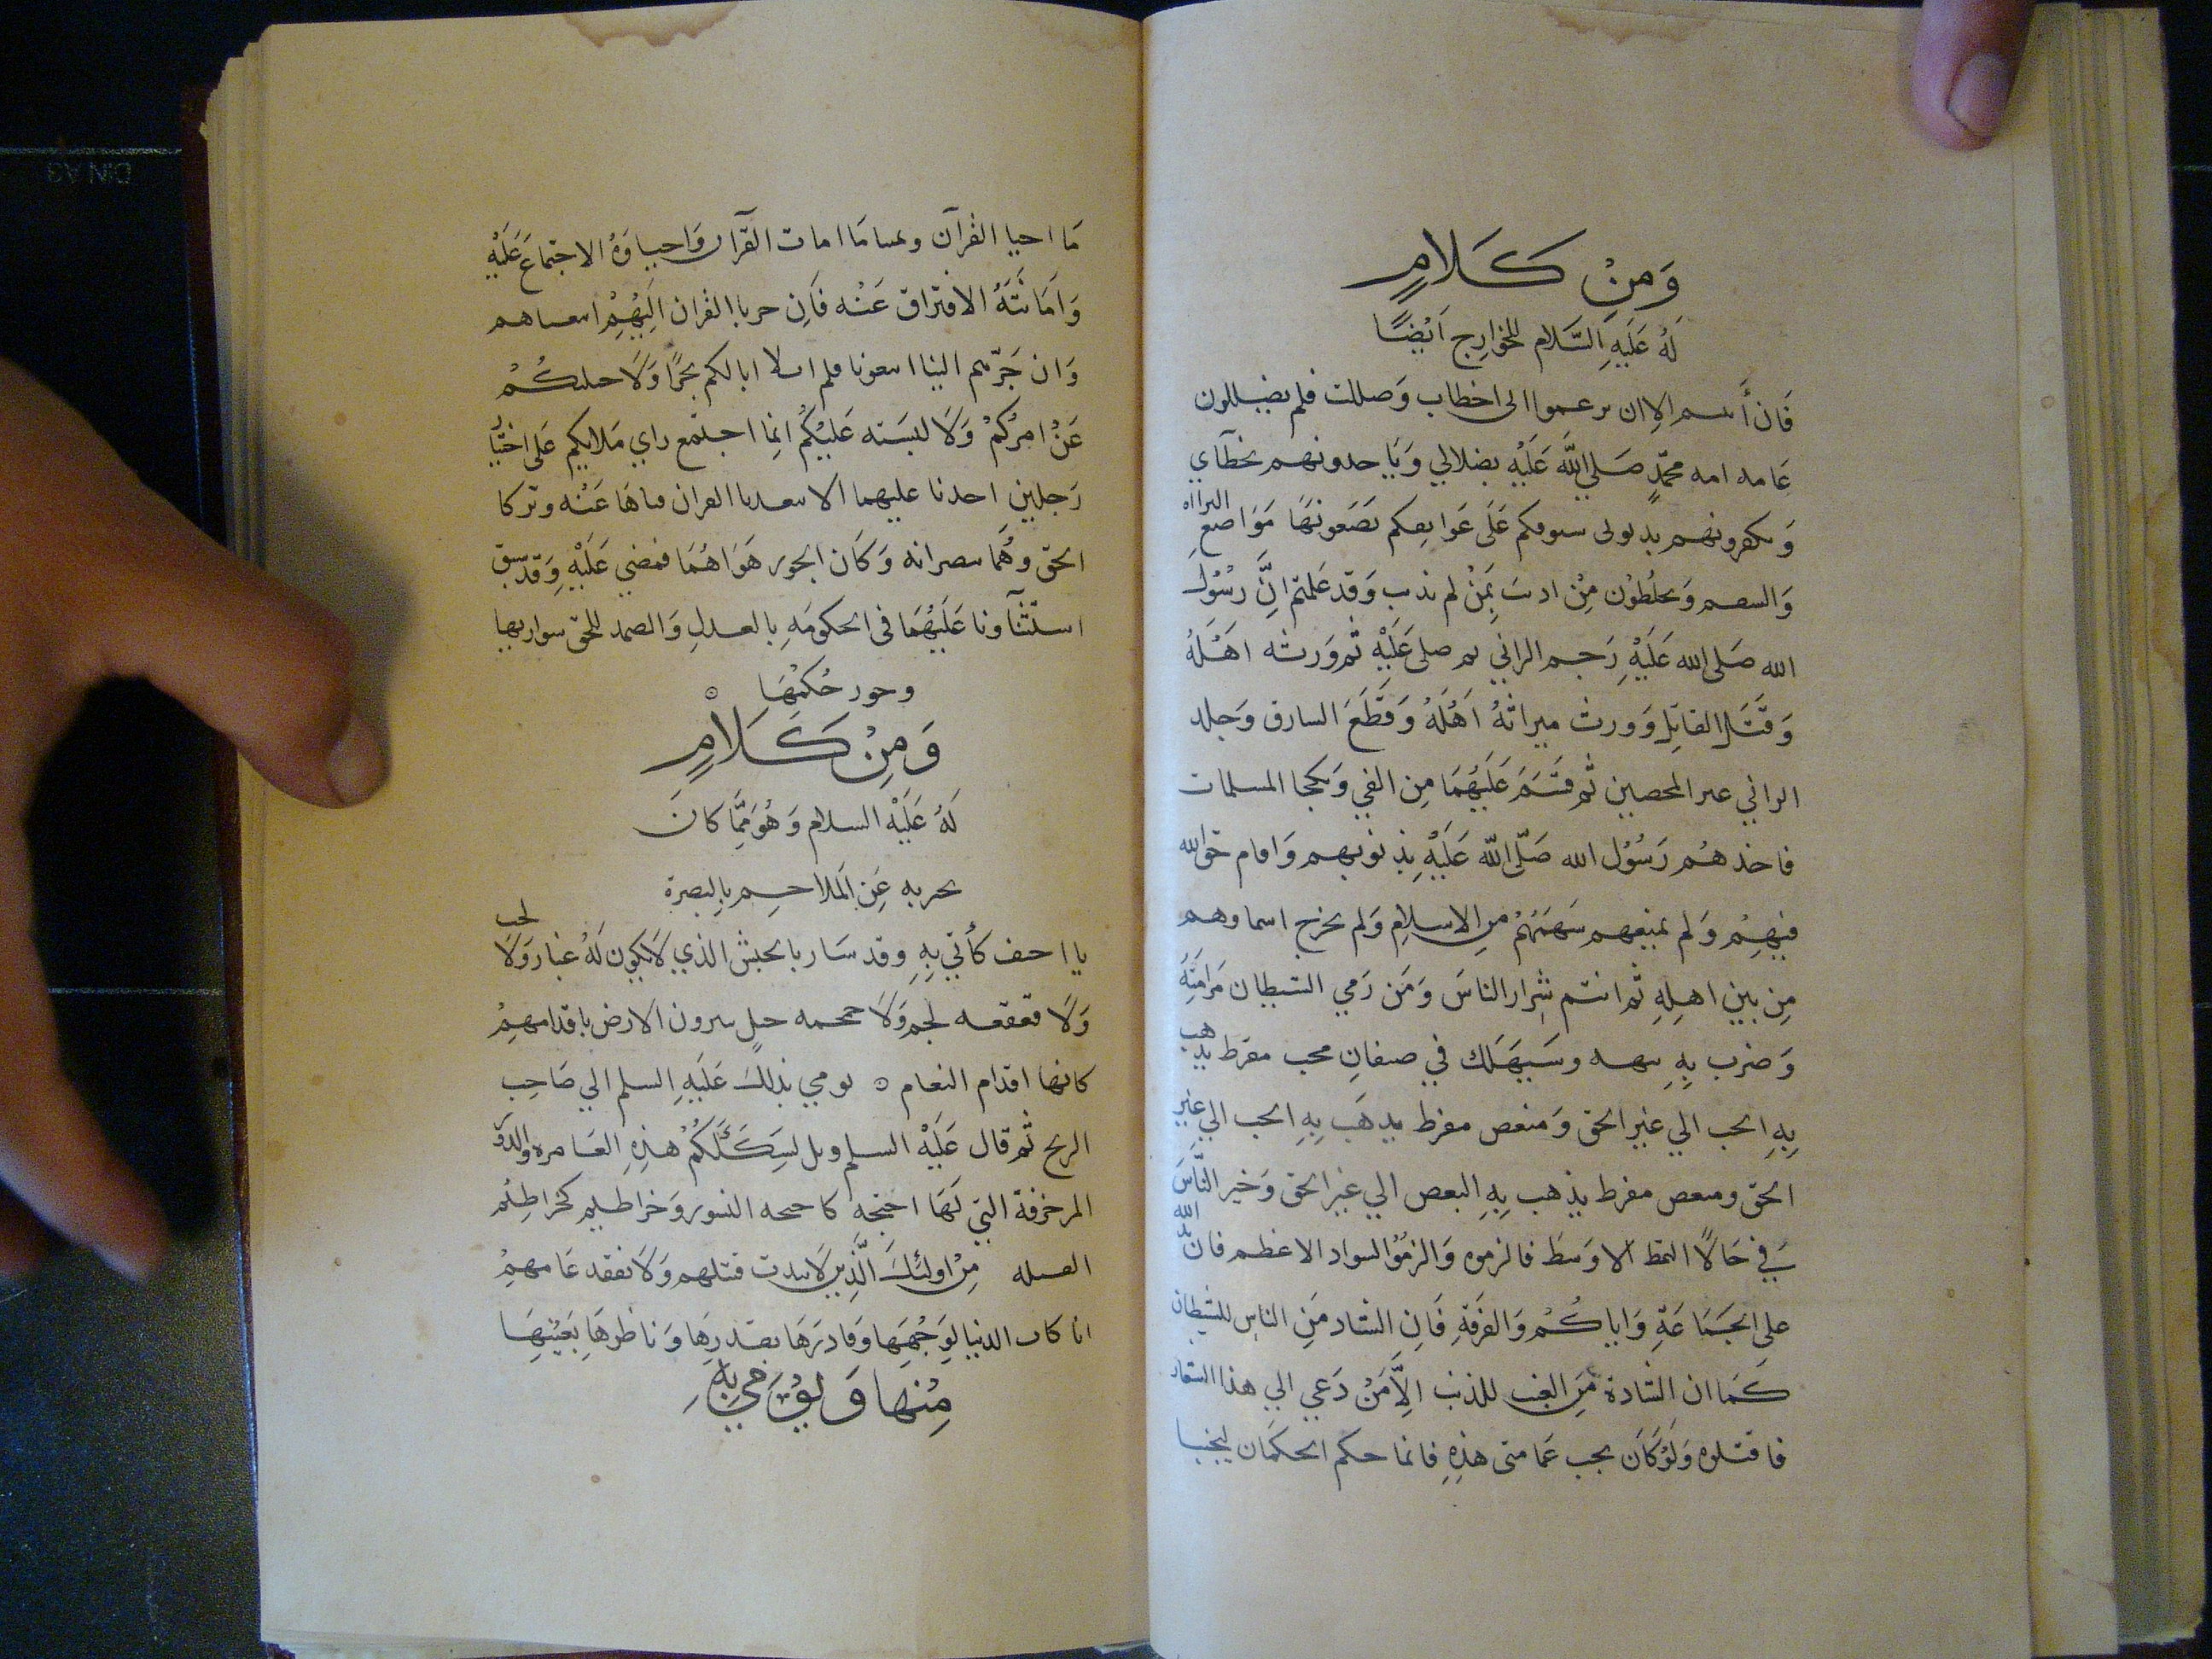 وَمِنْ كَلَامٍ
لَهُ عَلَيهِ السَّلام للخوارِج اَيْضًا
فَان أَبيتم الا ان تزعموا اني اخطات وَضللت فلم تضللون
عَامه امه محمّدٍ صَلي اللَّه عَلَيْهِ بضلالي وَتَاخذونهم بخطآي
وَتكفرونهم بذنوبي سيوفكم عَلَى عَواتقكم تضَعونهَا مَوَاضع البرااه
وَالسقم وَتخلطوْن مِنْ اذنبَ بِمَنْ لم يذنب وَقد عَلمتم انَّ رسُوْل
الله صَلى الله عَلَيْهِ رَجم الزاني ثم صلى عَلَيْهِ ثم وَرثه اهْلهُ
وَقَتَل القاتِل وَورث ميراثهُ اهْلهُ وَقَطَعَ السارق وَجلد
الزاني غير المحصين ثم قَسَمَ عَلَيْهِمَا مِن الفي وَنكحا المسلمات
فاخذهُم رَسُوْل الله صَلّى اللّه عَلَيْهِ بذنوبهم وَاقام حق الله
فيهِمْ وَلم يمنعهم سَهمَهُمْ من الاسلامِ وَلم يخرج اسماوهم
مِن بين اهلِهِ ثم انتم شرار الناسَ وَمَن رَمي الشيطان مَرامِيَهُ
وَضرب بِهِ تيهه وسَيهَلك في صنفانِ محب مفرط يذهب
بِهِ الحب الي غير الحق وَمبغض مفرط يذهَب بِهِ الحب الي غير
الحق ومبغض مفرط يذهب بِهِ البغض الي غير الحق وَخير النَّاسَ
فِيَّ حَالًا النمط الاوَسط فالزموه وَالزمُوْا السواد الاعظم فان يد الله
على الجَمَاعَةِ وَاياكُمْ وَالفرقةِ فَانِ الشاد مَنِ الناس للشيطان
كَمَا ان الشادة مَن الغنم للذئب الاَّ مَنْ دَعي الي هذا الشعار
فاقتلوه وَلَوْ كَاَن تحب عَمامتى هذِهِ فانما حكم الحكمَان ليحييا
مَا احيا القرآن ويميتا مَا امات القرآن وَاحياوَهُ الاجتماعَ عَلَيْهِ
وَاَمَاتَتَهُ الافتراق عَنْه فَاِن جرنا القران اليْهِمْ اتبعناهم
وَان جَرّهم الينا اتبعونا فلم ات لا ابا لكم بجرًا وَلَا ختلتكُمْ
عَنْ امرُكُمْ وَلَا لبسَته عَليْكُمْ انما اجتمع راي مَلايكم عَلى اختيار
رَجلين اخذنا عليهما الا يتعديا القران فتاهَا عَنْه وتركا
الحق وَهُمَا يبصرانه وَكَان الجور هَوَاهُمَا فمضي عَلَيْهِ وَقد سبق
استثنآونا عَلَيْهمَا فى الحكومَهِ بالعدلِ وَالصمد للحق سوا رايهما
وجور حُكمْهَا
وَمِنْ كَلَامٍ
لَهُ عَلَيْهِ السلام وَهُوَ مَّمَّا كانَ
يخربه عَنِ الَملاحِم بالبصرة
يا احنف كأنّي بِهِ وقد سَار بالجيش الذي لَا يكون لَهُ غبار وَلَا لجب
وَلَا قعقعه لجم وَلَا حمحمه خيلٍ يثيرون الارض باقدامهِمْ
كانها اقدام النعام ۝ يومي بذلكَ عَلَيهِ السلم الي صَاحِب
الزنج ثم قال عَلَيْهِ السلم ويل لسِكَككُمْ هَذِهِ العَامره والدور
المزخرفة التي لَهَا اجنحه كاجنحه النسور وَخراطيم كخراطِيْم
الفيله مِنْ اولئكَ الَّذِين لَا يندب قتلهم وَلَا يفقد غايبهِمْ
انا كاب الدنيا لوَجْهِهَا وَقادرَهَا بقدرِهَا وَناظرهَا بعَيْنِهَا
مِنها وَيُوْمي بِهِ